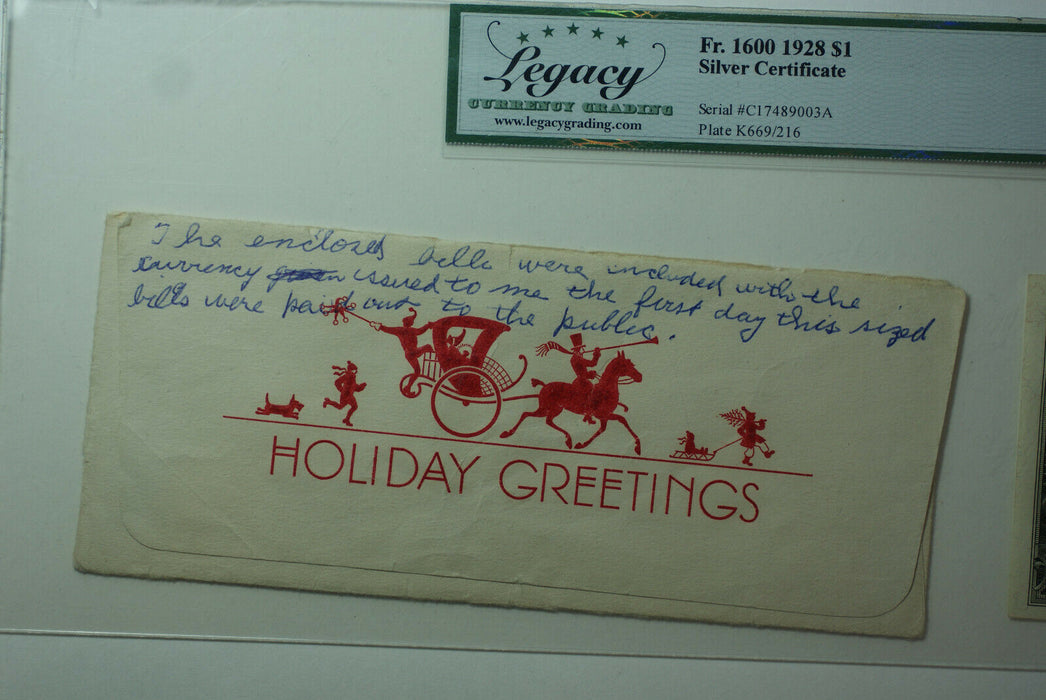 Legacy
CURRENCY GRADING
www.legacygrading.com
Fr. 1600 1928 $1
Silver Certificate
Serial #C17489003A
Plate K669/216
The enclosed bills were included with the
currency issued to me the first day this sized
bills were paid out to the public.
HOLIDAY GREETINGS